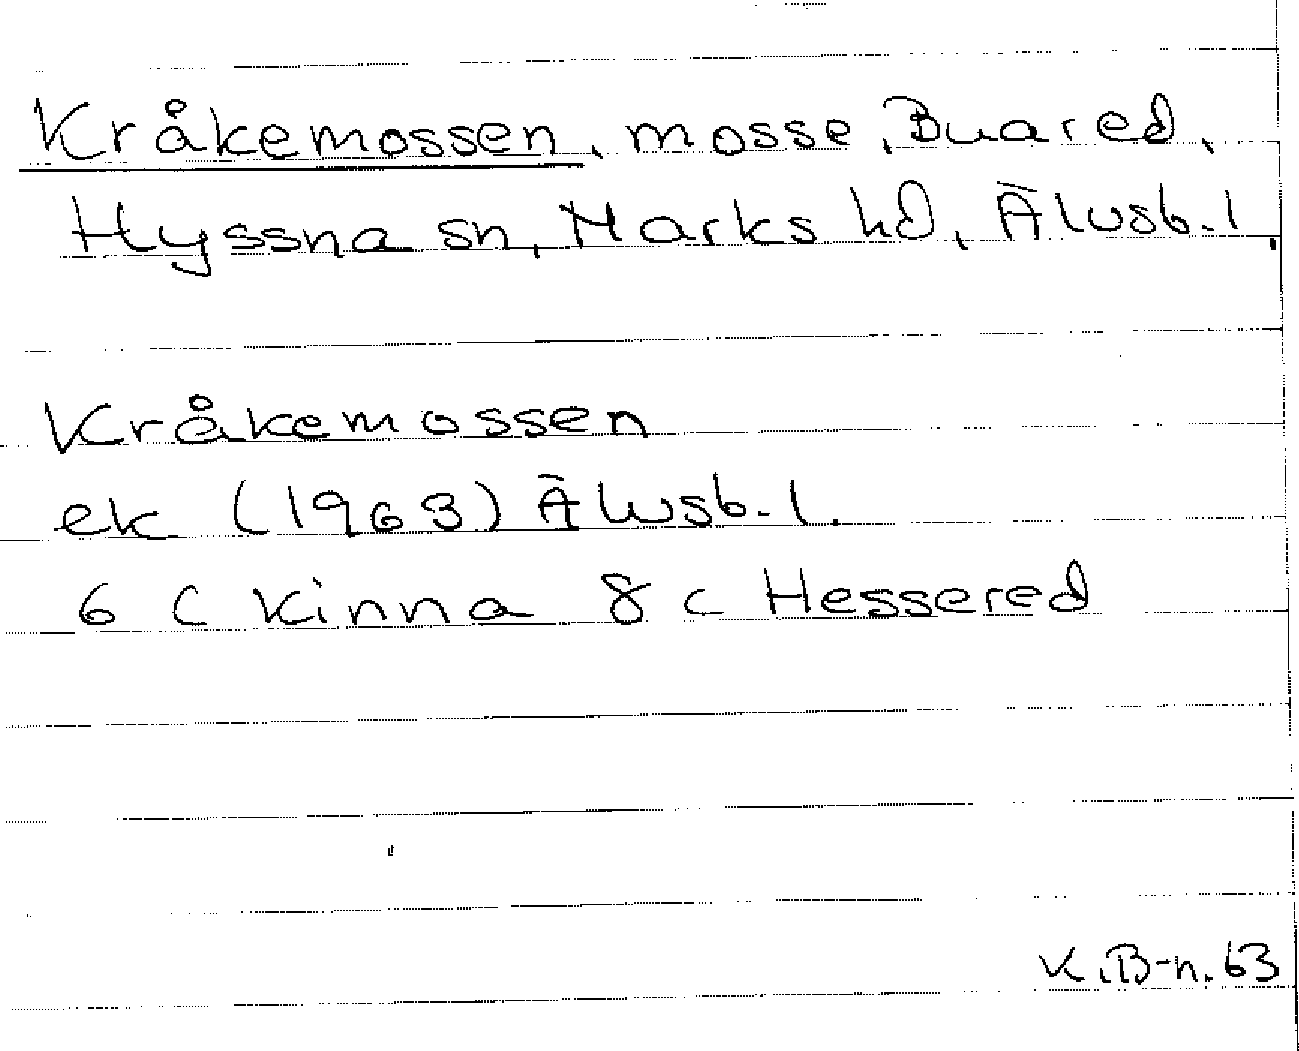 Kråkemossen, mosse, Buared,
Hyssna sn, Marks hd, Älvsb. l.
Kråkemossen
ek (1963) Älvsb. l.
6 C Kinna 8 c Hessered
K.B-n. 63